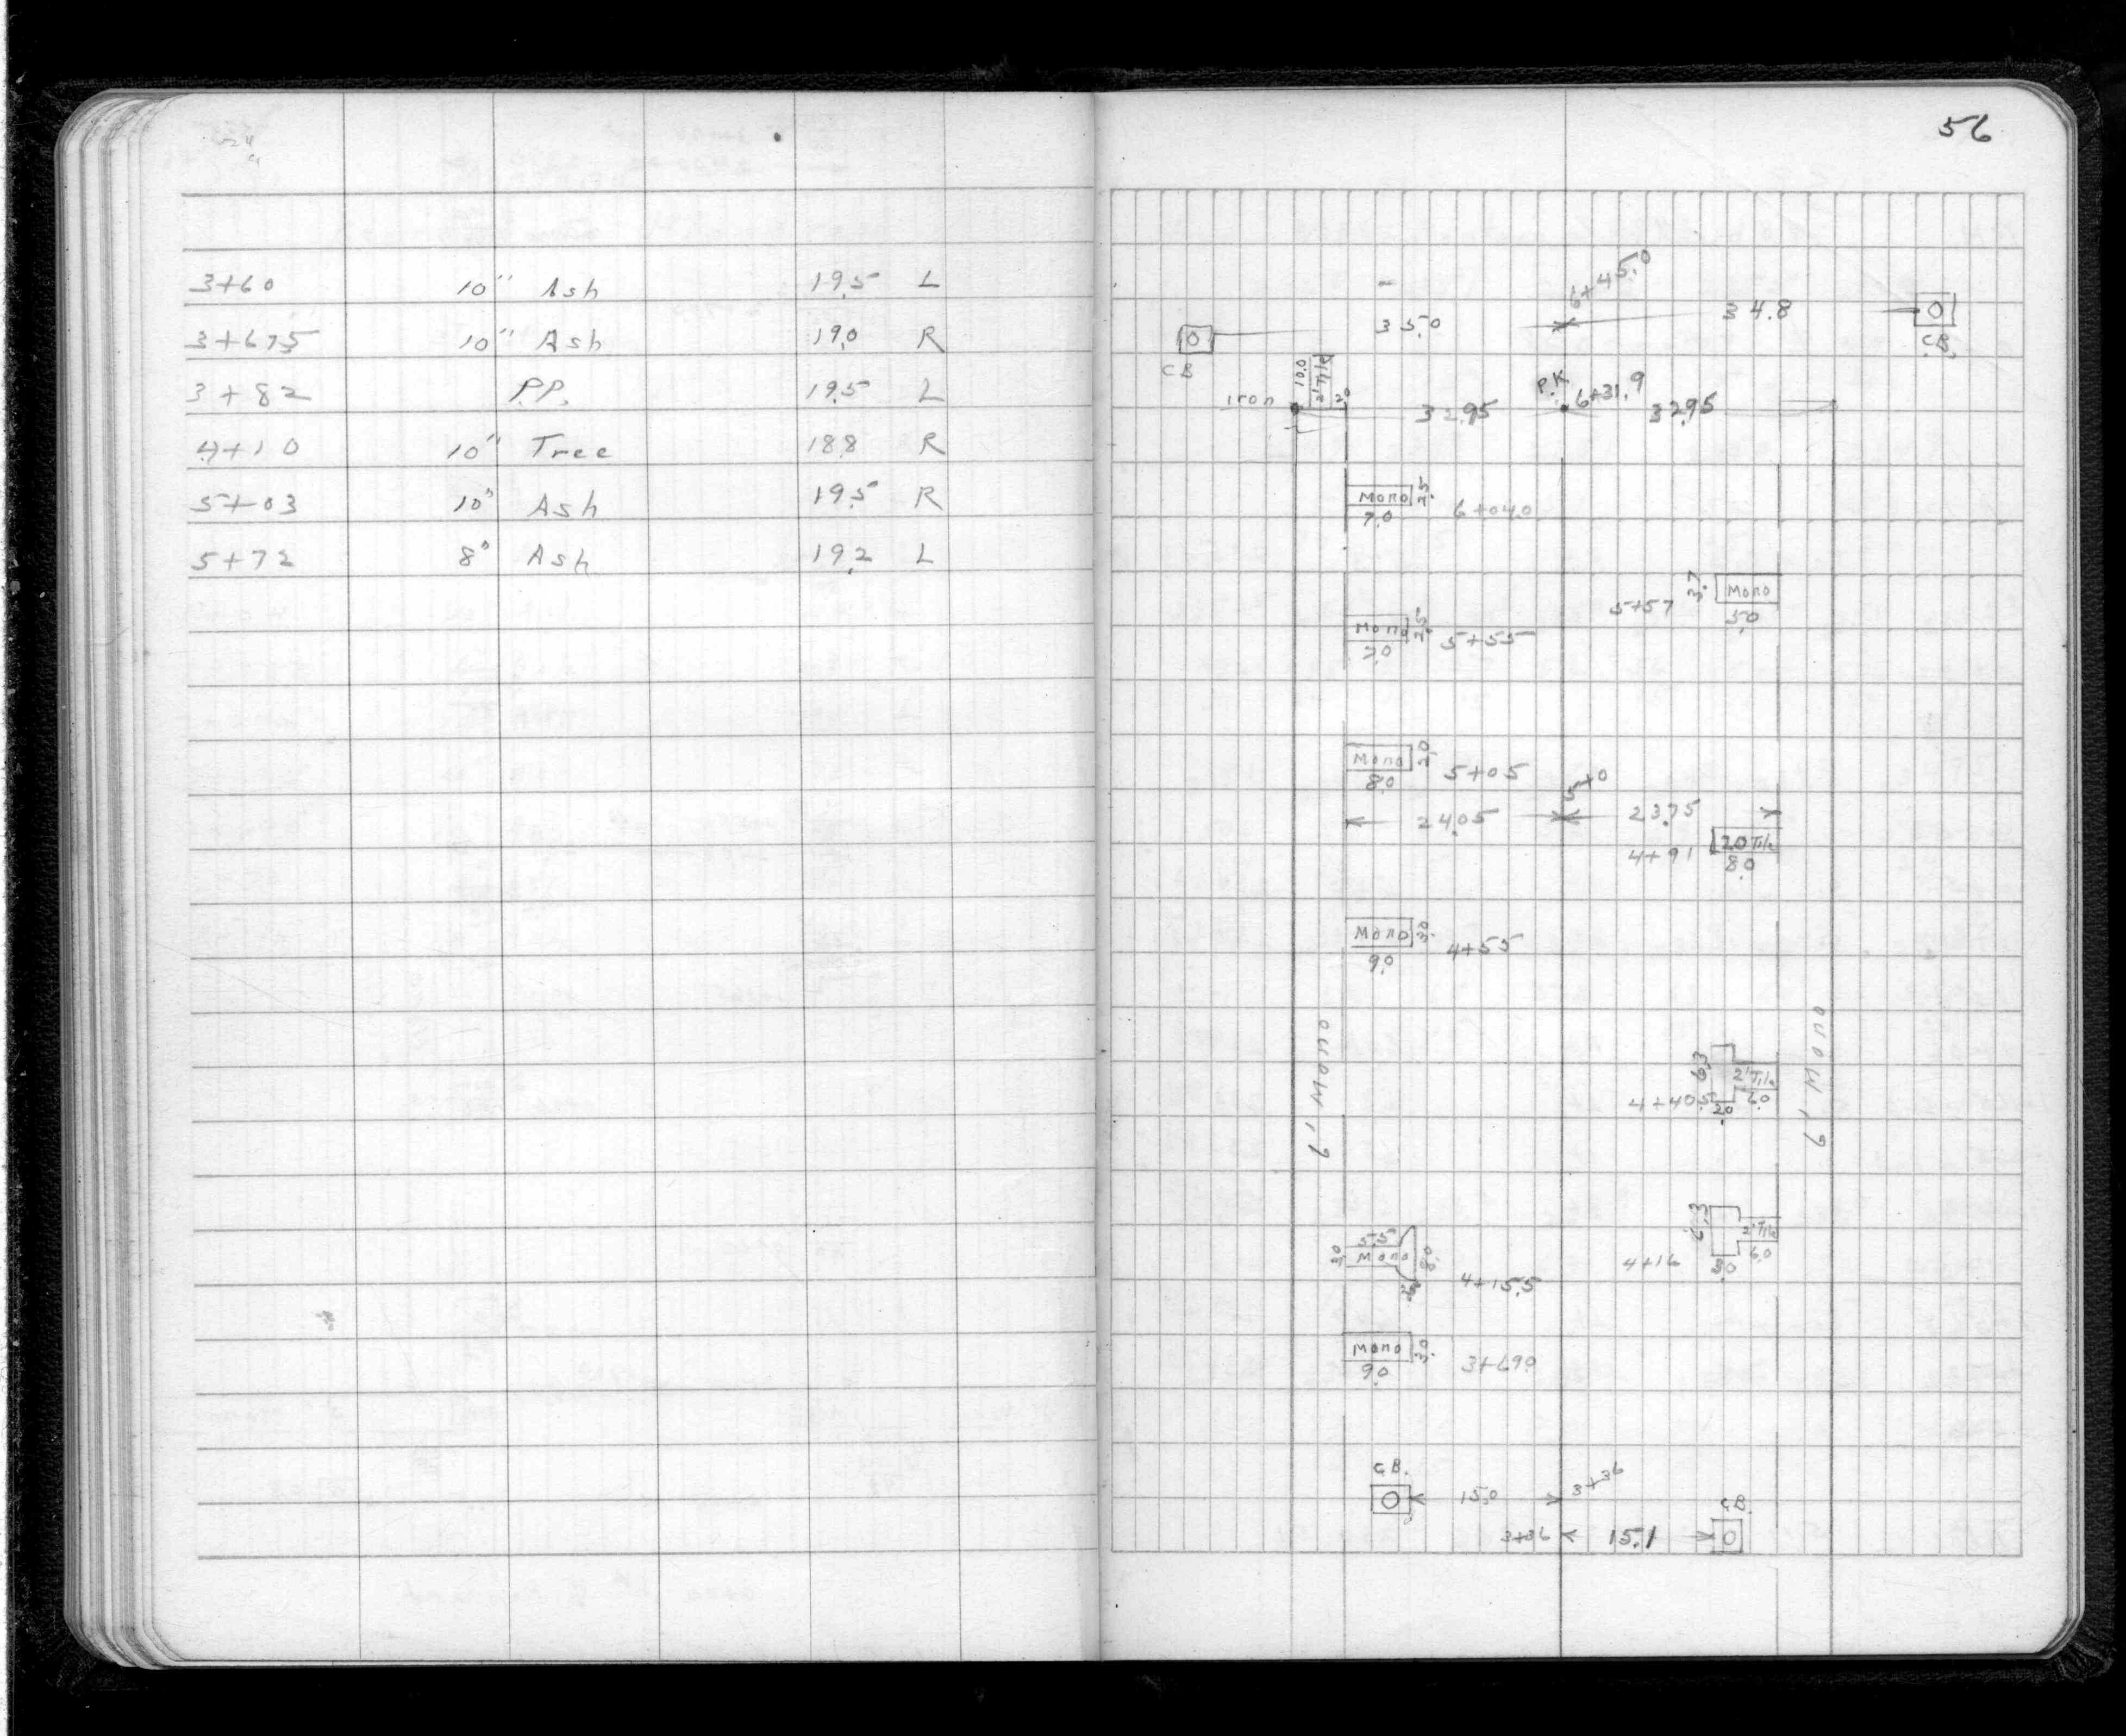 56
3+60 10" Ash 19.5 L
3+67.5 10" Ash 19.0 R
3+82 P.P. 19.5 L
4+10 10" Tree 18.8 R
5+03 10" Ash 19.5 R
5+72 8" Ash 19.2 L
6+45.0
35.0 34.8
CB C.B.
10.0 2'Tile 2.0
iron 32.95 P.K. 6+31.9 32.95
Mono 6+04.0
7.0
3.7 Mono
5+57 5.0
Mono 5+55
7.0
Mono 5+05
8.0 5+0
24.05 23.75
4+91 2.0 Tile
8.0
Mono 3.0 4+55
9.0
6' Mono 6' Mono
6.3 2'Tile
4+40.5 2.0 6.0
6.3 2'Tile
4+16 6.0
5.5
Mono 8.0
4+15.5
Mono 3.0 3+69.0
9.0
C.B. 3+36
15.0
C.B.
3+36 15.1